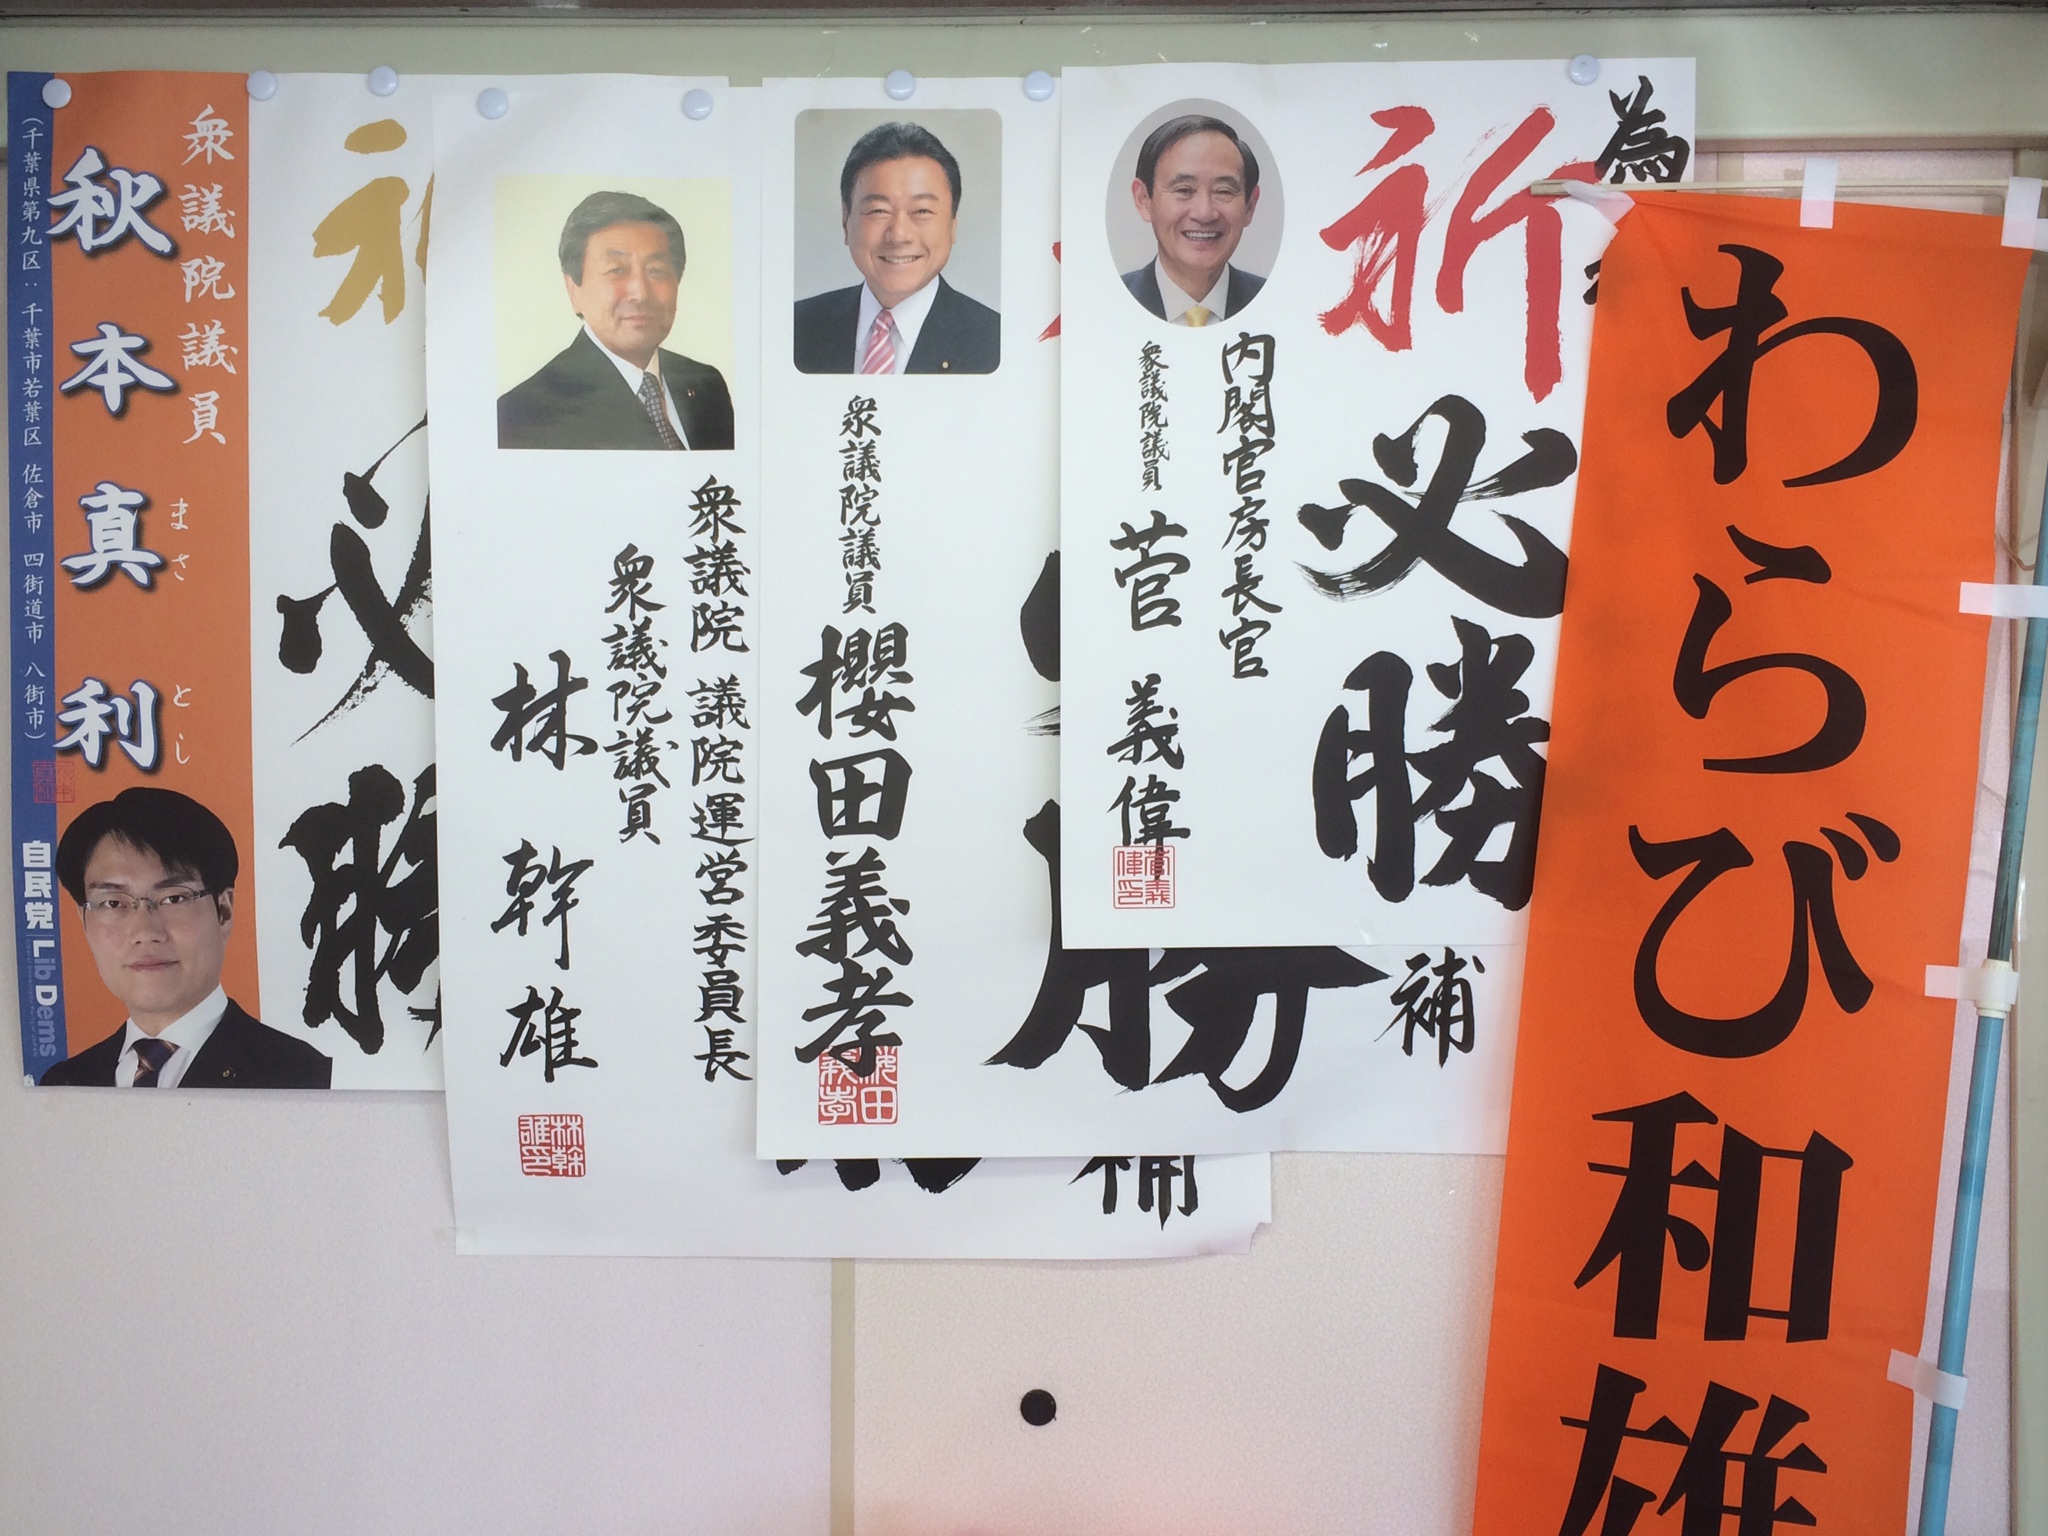 為
祈
必勝
内閣官房長官
衆議院議員
菅義偉
菅義偉印
わらび和雄
補
衆議院議員
櫻田義孝
櫻田義孝
補
衆議院 議院運営委員長
衆議院議員
林幹雄
林幹雄印
必
衆議院議員
秋本真利
まさとし
(千葉県第九区:千葉市若葉区 佐倉市 四街道市 八街市)
自民党
Lib Dems